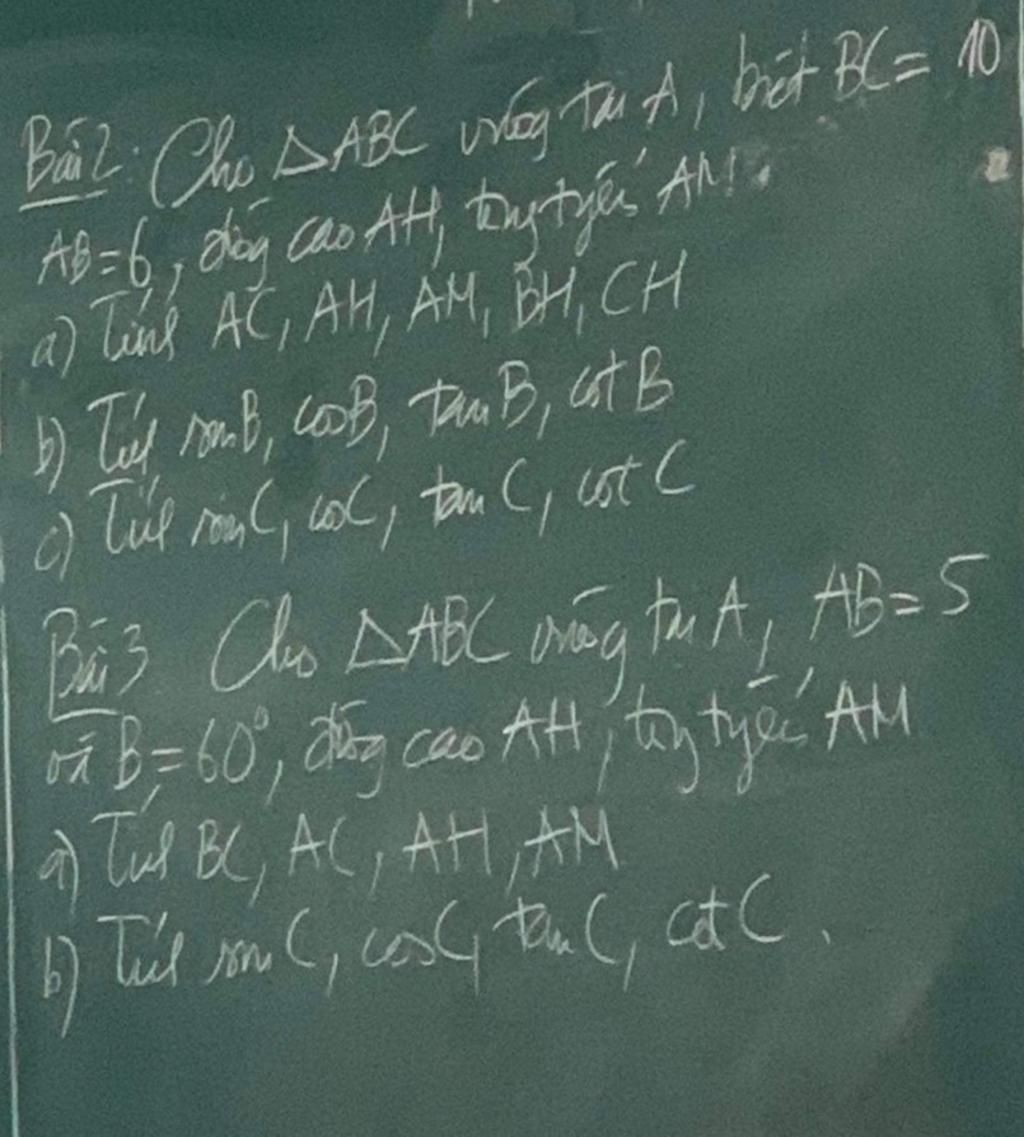 Bài 2: Cho △ABC vuông tại A, biết BC = 10
AB = 6, đường cao AH, trung tuyến AM.
a) Tính AC, AH, AM, BH, CH
b) Tính sin B, cos B, tan B, cot B
c) Tính sin C, cos C, tan C, cot C
Bài 3 Cho △ABC vuông tại A, AB = 5
và B = 60°, đường cao AH, trung tuyến AM
a) Tính BC, AC, AH, AM
b) Tính sin C, cos C, tan C, cot C.